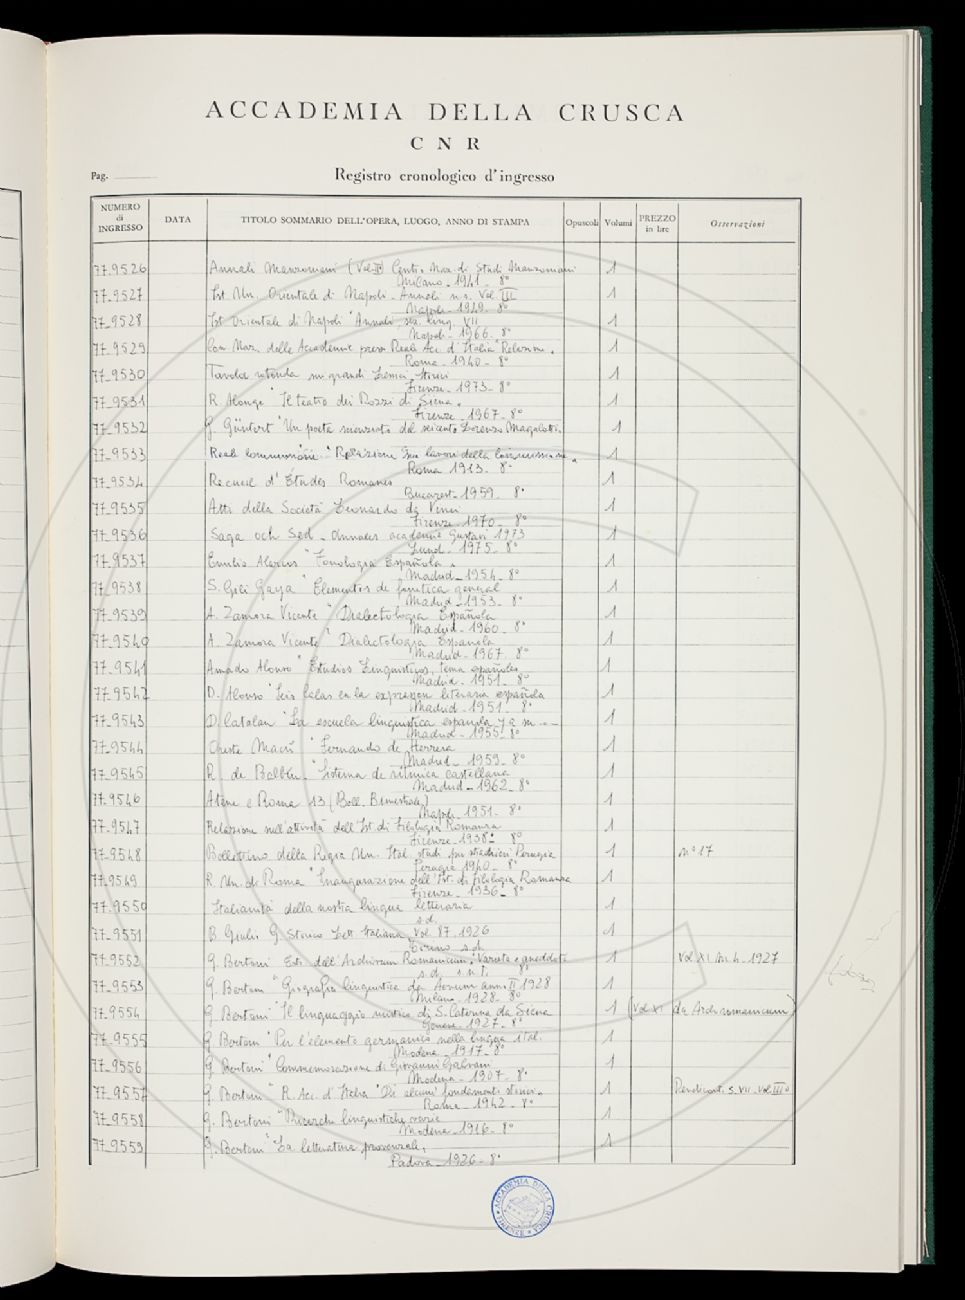 ACCADEMIA DELLA CRUSCA
C N R
Pag.
Registro cronologico d'ingresso
NUMERO di INGRESSO DATA TITOLO SOMMARIO DELL'OPERA, LUOGO, ANNO DI STAMPA Opuscoli Volumi PREZZO in lire Osservazioni
77-9526 Annali Manzoniani (Vol. Centro Naz. di Studi Manzoniani 1
Milano - 1941 - 8°
77-9527 Ist. Un. Orientale di Napoli - Annali n.s. Vol III 1
Napoli - 1949 - 8°
77-9528 Ist. Orientale di Napoli "Annali sez. ling. VII 1
Napoli - 1966 - 8°
77-9529 Com Naz. delle Accademie presso Reale Acc. d'Italia "Relazioni 1
Roma - 1940 - 8°
77-9530 Tavola rotonda sui grandi Lessici Storici 1
Firenze - 1973 - 8°
77-9531 R. Alonge "Il teatro dei Rozzi di Siena" 1
Firenze - 1967 - 8°
77-9532 G. Güntert "Un poeta scienziato del seicento Lorenzo Magalotti" 1
77-9533 Reale Commissione "Relazione sui lavori della Commissione" 1
Roma 1913 - 8°
77-9534 Recueil d'Études Romanes 1
Bucarest - 1959 - 8°
77-9535 Atti della Società Leonardo da Vinci 1
Firenze - 1970 - 8°
77-9536 Saga och Sed - Annales academiae Gustavi 1973 1
Lund - 1975 - 8°
77-9537 Emilio Alarcos "Fonologia Española" 1
Madrid - 1954 - 8°
77-9538 S. Gili Gaya "Elementos de fonetica general 1
Madrid - 1953 - 8°
77-9539 A. Zamora Vicente "Dialectologia Española 1
Madrid - 1960 - 8°
77-9540 A. Zamora Vicente "Dialectologia Española 1
Madrid - 1967 - 8°
77-9541 Amado Alonso "Estudios Linguisticos, tema españoles 1
Madrid - 1951 - 8°
77-9542 D. Alonso "Seis Calas en la expresion literaria española 1
Madrid - 1951 - 8°
77-9543 D. Catalan "La escuela linguistica espanola y a su --- 1
Madrid - 1955 - 8°
77-9544 Oreste Macrì "Fernando de Herrera 1
Madrid - 1959 - 8°
77-9545 R. de Balbin "Sistema de ritmica castellana 1
Madrid - 1962 - 8°
77-9546 Atene e Roma 13 (Boll. Bimestrale) 1
Napoli - 1951 - 8°
77-9547 Relazione sull'attività dell'Ist. di Filologia Romanza 1
Firenze - 1938 - 8°
77-9548 Bollettino della Regia Un. Ital. studi per stranieri Perugia 1 n° 17
Perugia 1940 - 8°
77-9549 R. Un. di Roma "Inaugurazione dell'Ist. di Filologia Romanza 1
Firenze - 1936 - 8°
77-9550 Italianità della nostra lingua letteraria 1
s.d.
77-9551 B. Giulio G. Storico Lett. Italiana Vol. 87. 1926 1
Torino s.d.
77-9552 G. Bertoni "Estr. dall'Archivum Romanicum, Varietà e aneddoti 1 Vol XI N. 4 - 1927
s.d. s.n.t. 8°
77-9553 G. Bertoni "Geografia linguistica da Aevum anno II 1928 1
Milano - 1928 - 8°
77-9554 G. Bertoni "Il linguaggio mistico di S. Caterina da Siena 1 (Vol XI da Arch. romanicum)
Genève. 1927 - 8°
77-9555 G. Bertoni "Per l'elemento germanico nella lingua ital. 1
Modena - 1917 - 8°
77-9556 G. Bertoni "Commemorazione di Giovanni Galvani 1
Modena - 1907 - 8°
77-9557 G. Bertoni "R. Acc. d'Italia "Di alcuni fondamenti storici 1 Rendiconti S. VII - Vol. III°
Roma - 1942 - 8°
77-9558 G. Bertoni "Ricerche linguistiche varie 1
Modena - 1916 - 8°
77-9559 G. Bertoni "La letteratura provenzale, 1
Padova - 1926 - 8°
ACCADEMIA DELLA CRUSCA FIRENZE